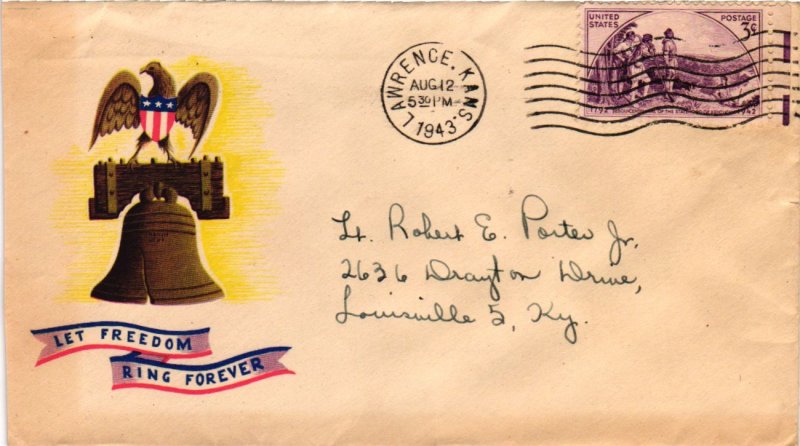 LAWRENCE, KANS.
AUG 12
5 30 PM
1943
UNITED STATES
POSTAGE
3¢
1792
1942
Lt. Robert E. Porter Jr.
2636 Drayton Drive,
Louisville 5, Ky.
LET FREEDOM
RING FOREVER